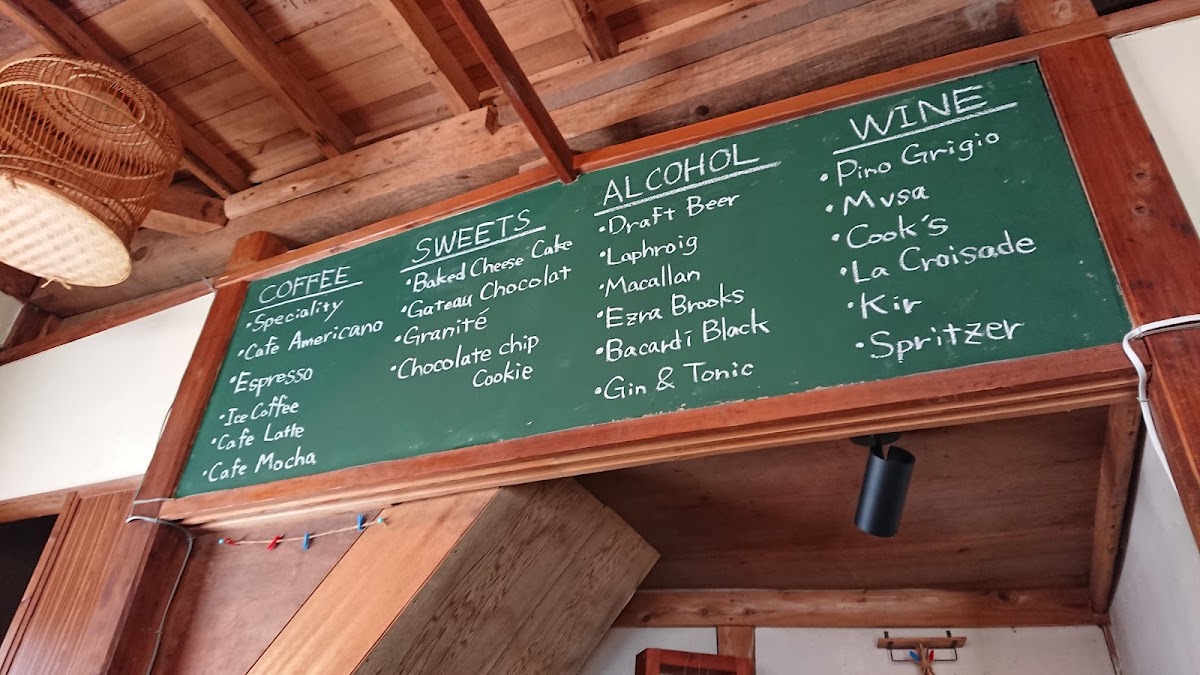 COFFEE
·Speciality
·Cafe Americano
·Espresso
·Ice Coffee
·Cafe Latte
·Cafe Mocha
SWEETS
·Baked Cheese Cake
·Gateau Chocolat
·Granité
·Chocolate chip
Cookie
ALCOHOL
·Draft Beer
·Laphroig
·Macallan
·Ezra Brooks
·Bacardi Black
·Gin & Tonic
WINE
·Pino Grigio
·Mvsa
·Cook's
·La Croisade
·Kir
·Spritzer